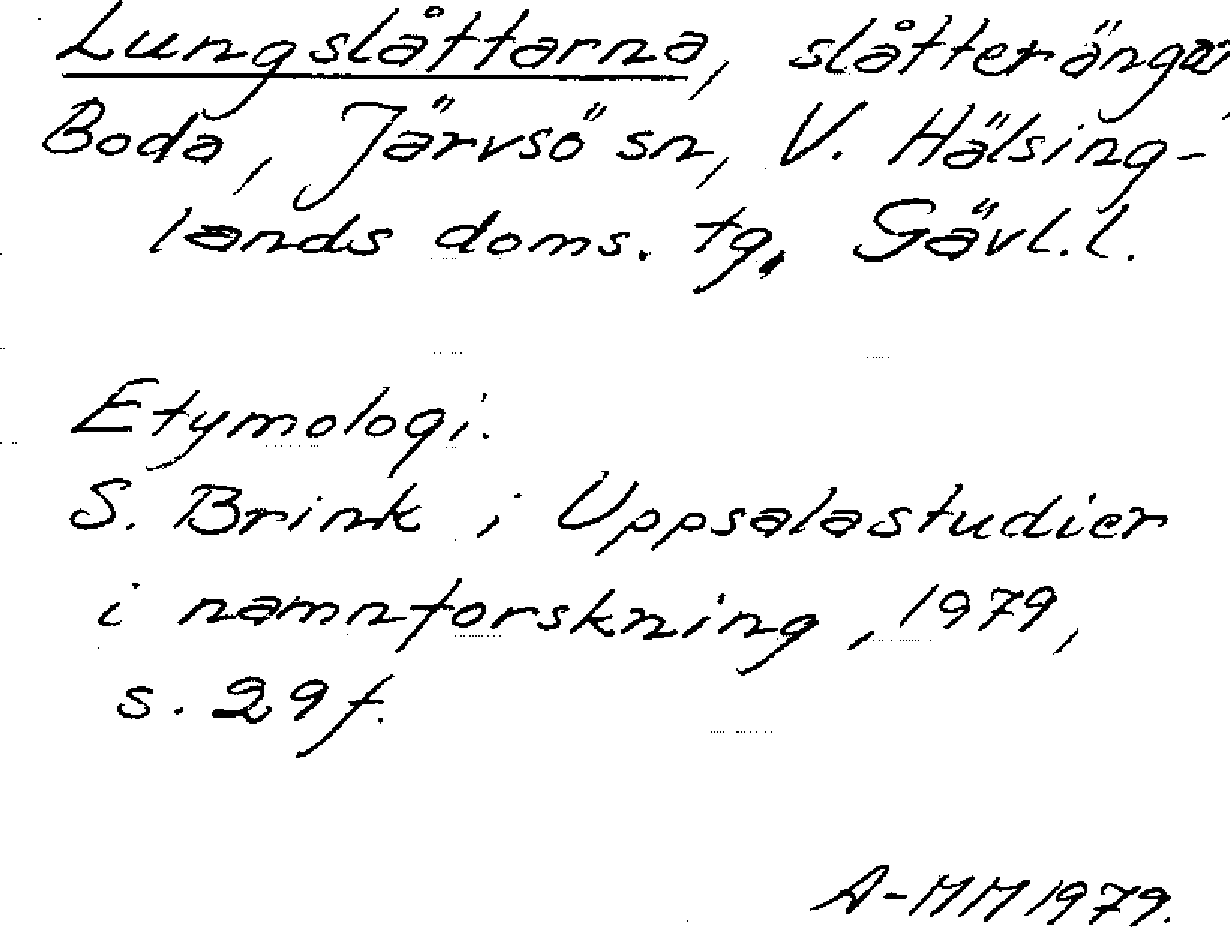 Lungslåttarna, slåtterängar
Boda, Järvsö sn, V. Hälsing-
lands doms. tg, Gävl.l.
Etymologi.
S. Brink i Uppsalastudier
i namnforskning, 1979,
s. 29 f.
A-MM 1979.